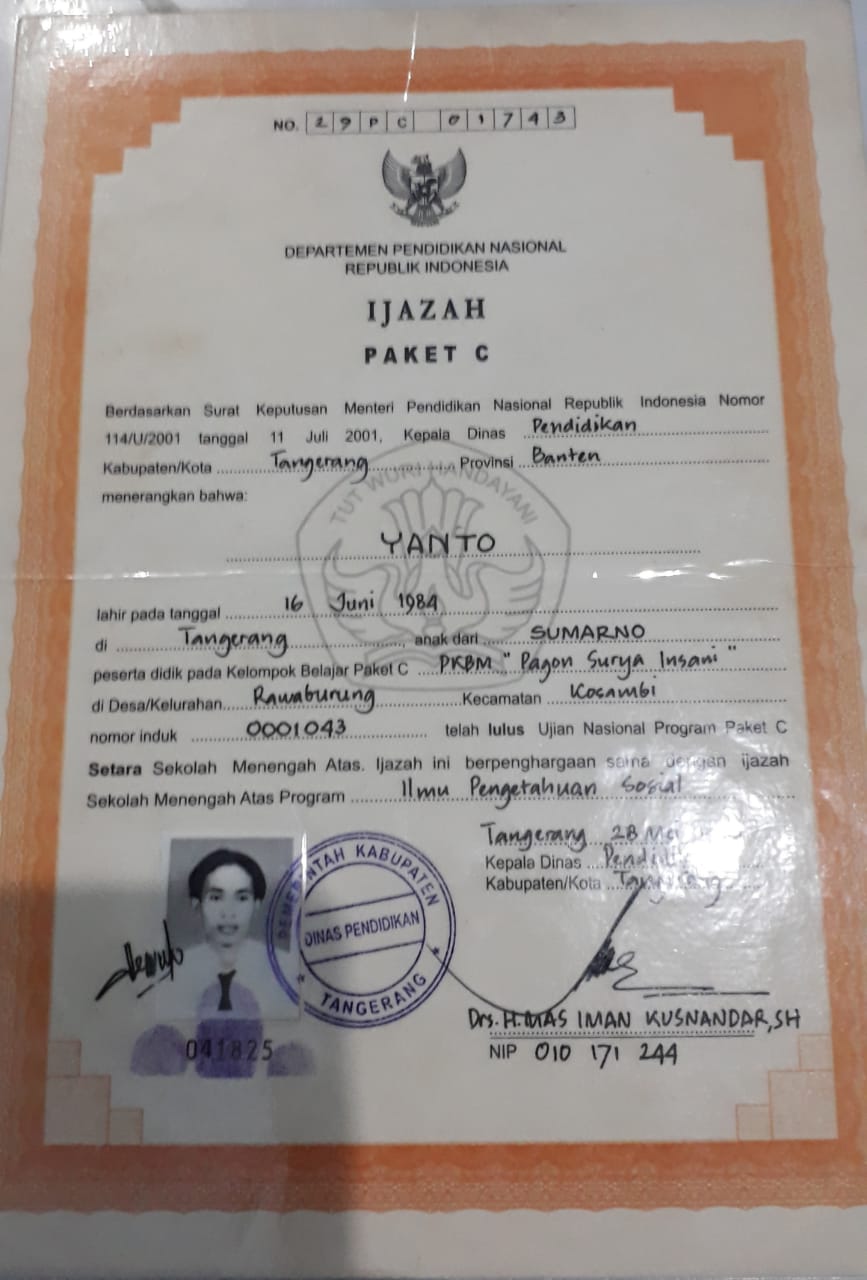 NO. 29PC 01743
DEPARTEMEN PENDIDIKAN NASIONAL
REPUBLIK INDONESIA
IJAZAH
PAKET C
Berdasarkan Surat Keputusan Menteri Pendidikan Nasional Republik Indonesia Nomor
114/U/2001 tanggal 11 Juli 2001, Kepala Dinas Pendidikan
Kabupaten/Kota Tangerang Provinsi Banten
menerangkan bahwa:
TUT WURI HANDAYANI
YANTO
lahir pada tanggal 16 Juni 1984
di Tangerang, anak dari SUMARNO
peserta didik pada Kelompok Belajar Paket C PKBM "Pagon Surya Insani"
di Desa/Kelurahan Rawaburung Kecamatan Kosambi
nomor induk 0001043 telah lulus Ujian Nasional Program Paket C
Setara Sekolah Menengah Atas. Ijazah ini berpenghargaan sama dengan ijazah
Sekolah Menengah Atas Program Ilmu Pengetahuan Sosial
Tangerang 28 Mei
Kepala Dinas Pendidikan
Kabupaten/Kota Tangerang
PEMERINTAH KABUPATEN
DINAS PENDIDIKAN
TANGERANG
Drs. H. MAS IMAN KUSNANDAR, SH
NIP 010 171 244
041825